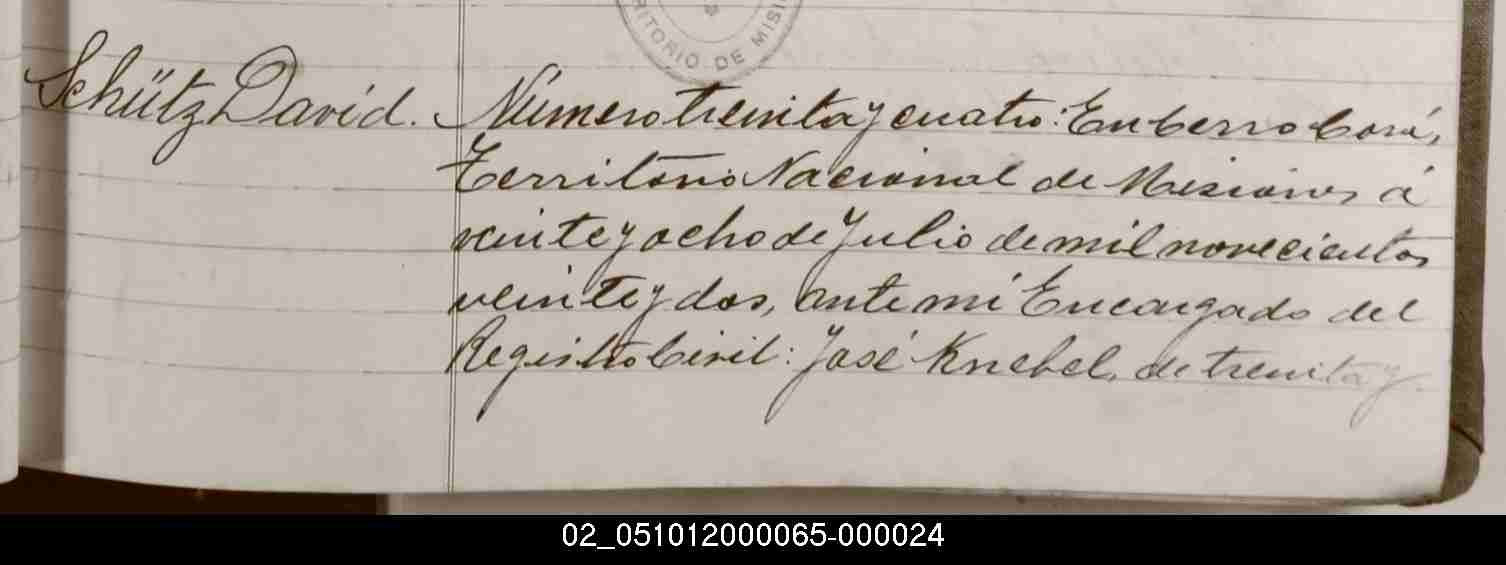 RITORIO DE MISI
Schütz David.
Número treinta y cuatro: En Cerro Corá,
Territorio Nacional de Misiones á
veinte y ocho de Julio de mil novecientos
veinte y dos, ante mi Encargado del
Registro Civil: José Knebel, de treinta y
02_051012000065-000024